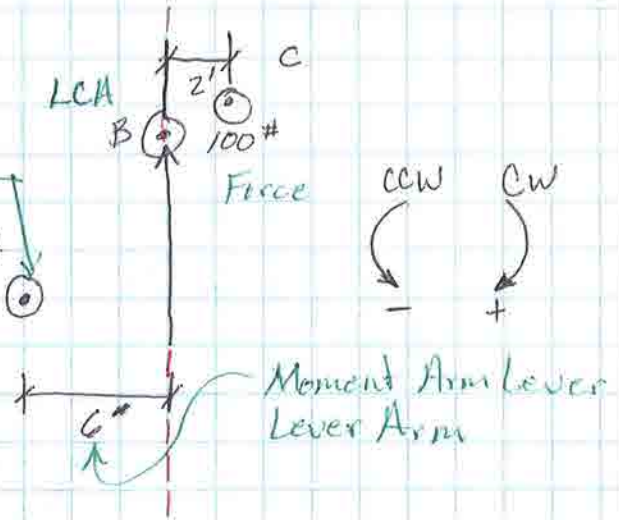 C
2'
LCA
B
100#
Force
CCW
CW
-
+
6"
Moment Arm Lever
Lever Arm